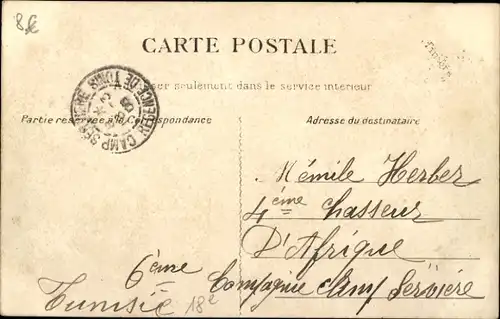 8€
CARTE POSTALE
seulement dans le service intérieur
Partie réservée à la Correspondance
Adresse du destinataire
CAMP SERVIÈRE
RÉGENCE DE TUNIS
Mémile Herber
4ème Chasseur
D'Afrique
6ème Compagnie Camp Servière
Tunisie 18e